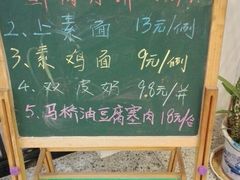 2、上素面 13元/例
3、素鸡面 9元/例
4、双皮奶 9.8元/并
5、马桥油豆腐塞肉 18元/